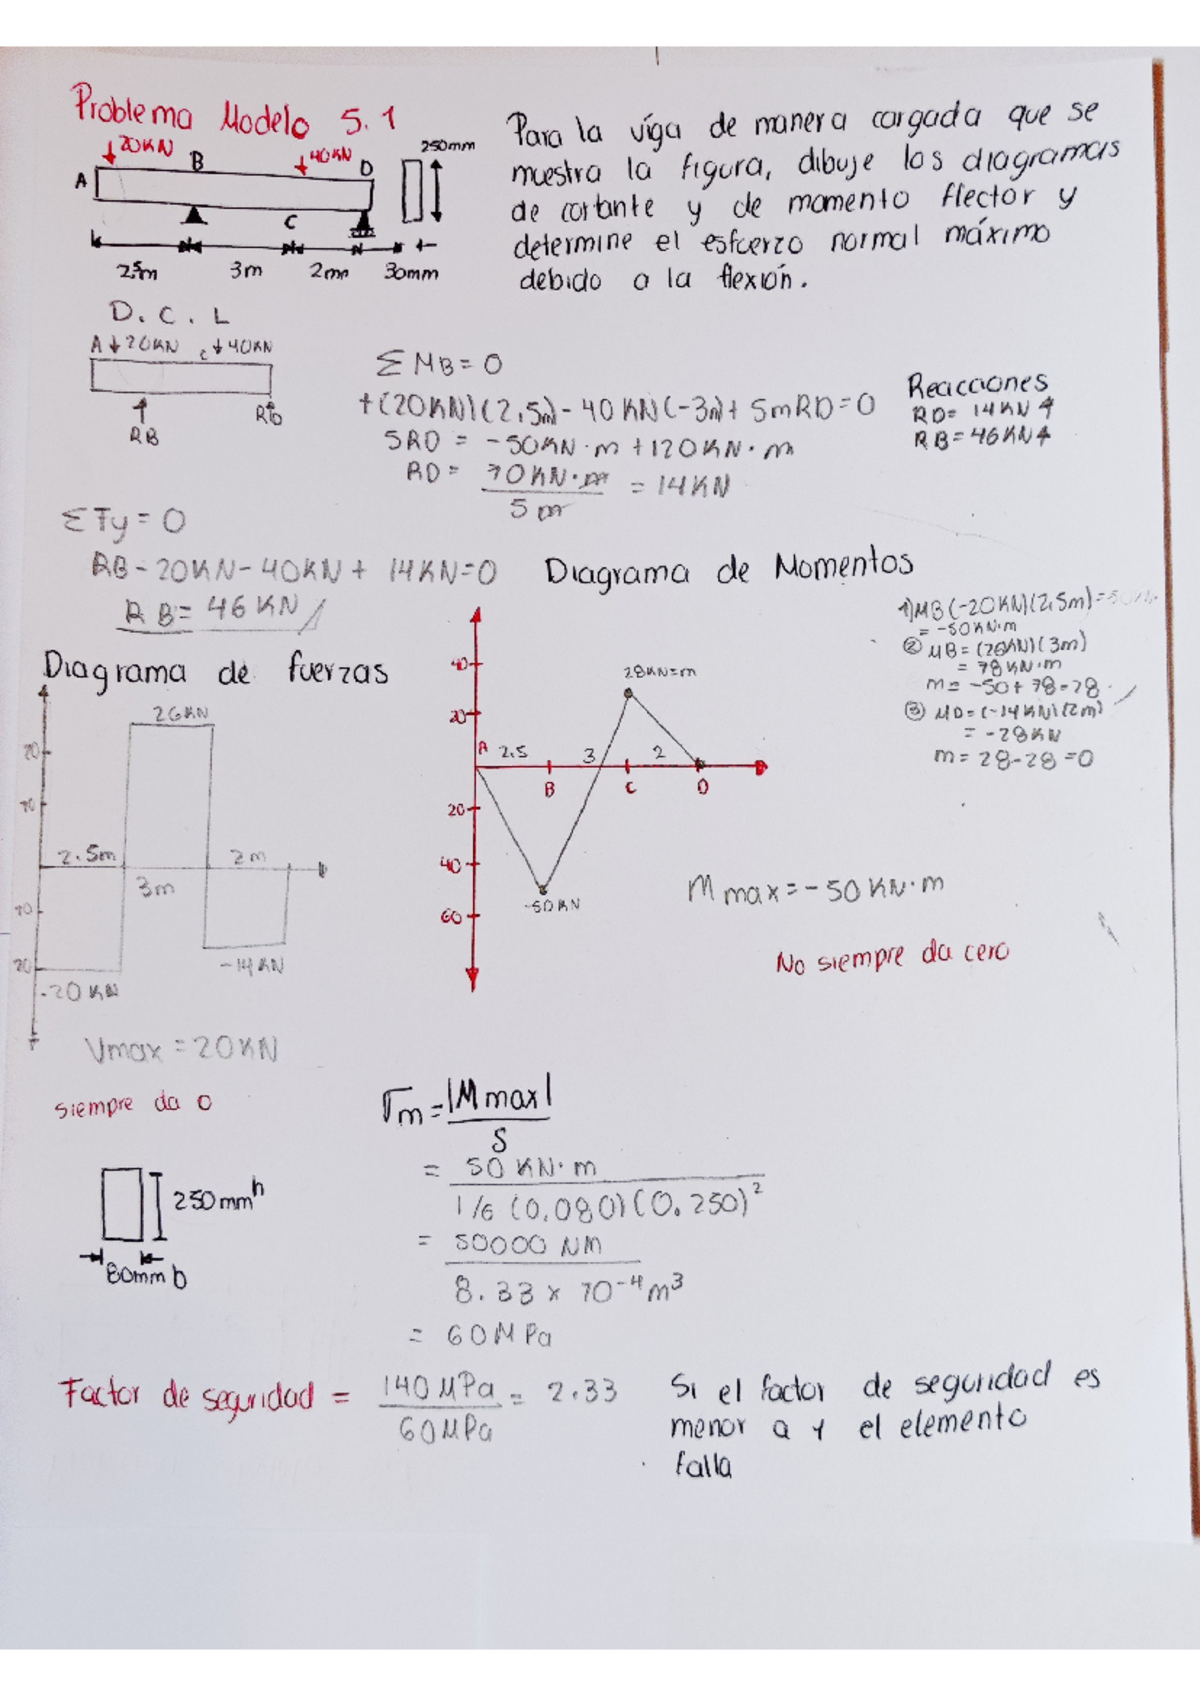 Problema Modelo 5.1
Para la viga de manera cargada que se
muestra la figura, dibuje los diagramas
de cortante y de momento flector y
determine el esfuerzo normal máximo
debido a la flexión.
↓20KN B ↓40KN D 250mm
A
C
2.5m 3m 2mn 30mm
D. C. L
A↓20KN c↓40KN
RB RD
ΣMB=0
+(20KN)(2,5m)-40KN(-3m)+5mRD=0
5RD = -50KN·m+120KN·m
RD= 70KN·m = 14KN
5m
Reacciones
RD= 14KN↑
RB=46KN↑
ΣFy=0
RB-20KN-40KN+14KN=0
RB= 46KN
Diagrama de Momentos
1)MB(-20KN)(2,5m)=-50KN
= -50KN·m
② MB=(26KN)(3m)
= 78KN·m
m=-50+78=28
③ MD=(-14KN)(2m)
= -28KN
m=28-28=0
40
20
28KN=m
A 2.5 3 2
B C D
20
40
60
-50KN
Mmax=-50KN·m
No siempre da cero
Diagrama de fuerzas
26KN
20
10
2.5m 2m
3m
10
20
-14KN
-20KN
Vmax=20KN
siempre da 0
σm=|Mmax|
S
= 50KN·m
1/6(0.080)(0.250)²
= 50000NM
8.33x10⁻⁴m³
= 60MPa
250mm h
80mm b
Factor de seguridad = 140MPa = 2.33
60MPa
Si el factor de seguridad es
menor a 1 el elemento
falla